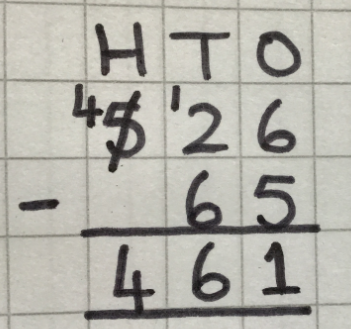 H T O
4 5 1 2 6
- 6 5
4 6 1